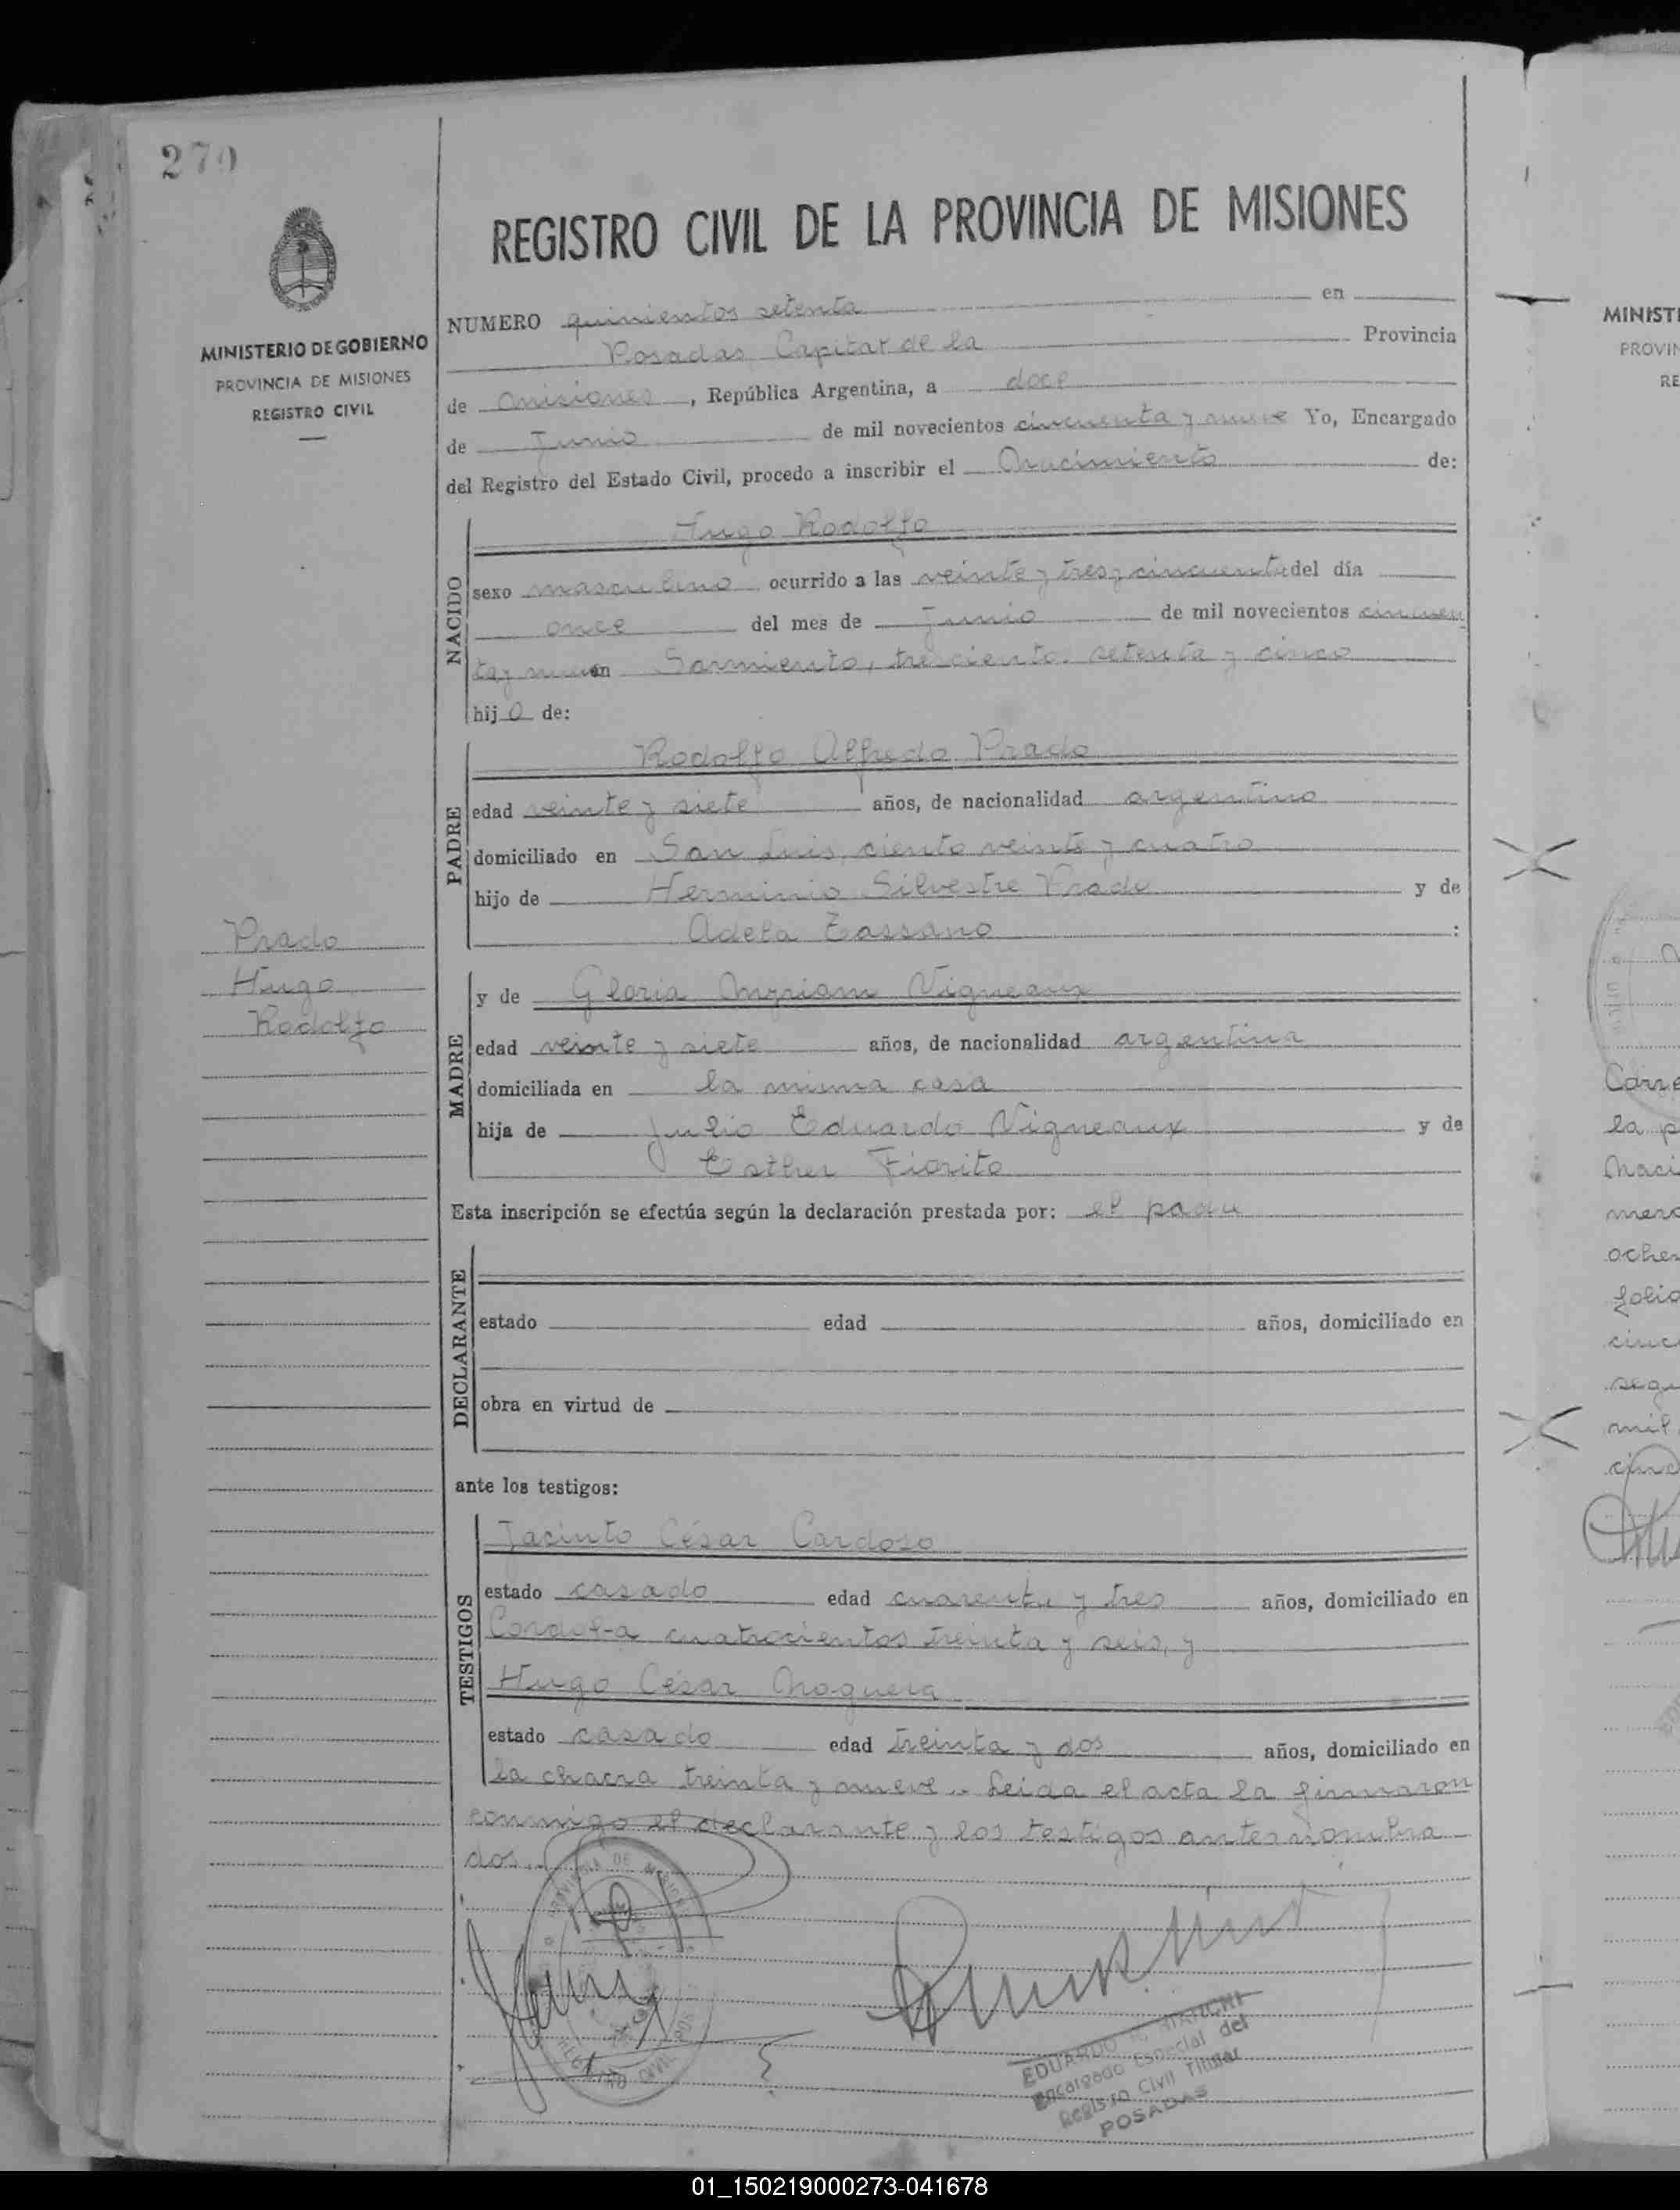 270
MINISTERIO DE GOBIERNO
PROVINCIA DE MISIONES
REGISTRO CIVIL
Prado
Hugo
Rodolfo
REGISTRO CIVIL DE LA PROVINCIA DE MISIONES
NUMERO quinientos setenta en
Posadas Capital de la Provincia
de Misiones, República Argentina, a doce
de Junio de mil novecientos cincuenta y nueve Yo, Encargado
del Registro del Estado Civil, procedo a inscribir el Nacimiento de:
NACIDO
Hugo Rodolfo
sexo masculino ocurrido a las veinte y tres y cincuenta del día
once del mes de Junio de mil novecientos cincuen
ta y nueve en Sarmiento, trescientos setenta y cinco
hijo de:
PADRE
Rodolfo Alfredo Prado
edad veinte y siete años, de nacionalidad argentino
domiciliado en San Luis, ciento veinte y cuatro
hijo de Herminio Silvestre Prado y de
Adela Tassano :
MADRE
y de Gloria Myriam Vigneaux
edad veinte y siete años, de nacionalidad argentina
domiciliada en la misma casa
hija de Julio Eduardo Vigneaux y de
Esther Fiorito
Esta inscripción se efectúa según la declaración prestada por: el padre
DECLARANTE
estado edad años, domiciliado en
obra en virtud de
ante los testigos:
TESTIGOS
Jacinto César Cardoso
estado casado edad cuarenta y tres años, domiciliado en
Cordoba cuatrocientos treinta y seis, y
Hugo César Noguera
estado casado edad treinta y dos años, domiciliado en
la chacra treinta y nueve.. Leida el acta la firmaron
conmigo el declarante y los testigos antes nombra
dos..
EDUARDO
Encargado Especial del
Registro Civil Titular
POSADAS
MINIST
PROVIN
RE
Carre
la p
Naci
mero
ochen
folio
cinc
segu
mil
01_150219000273-041678